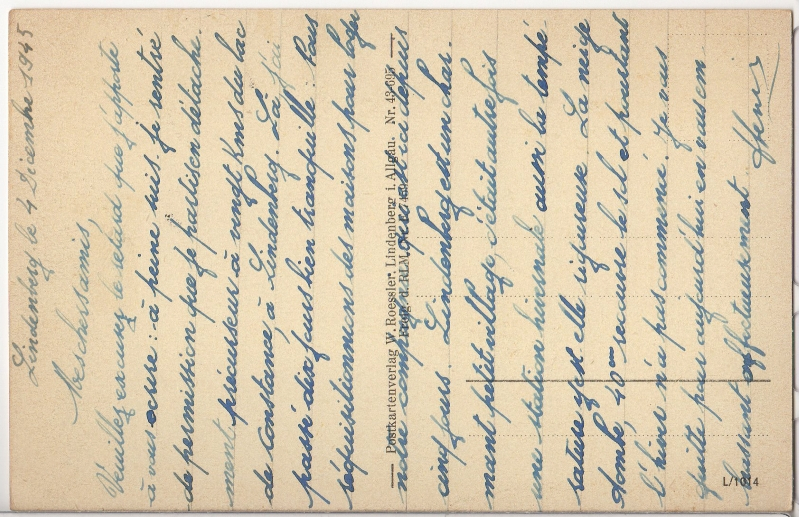 Lindenberg le 4 Dicembre 1945
Mes chers amis,
Veuillez excuser le retard que j'apporte
à vous écrire : à peine suis-je rentré
de permission que je partis en détache-
ment précurseur à vingt kms du lac
de Constance, à Lindenberg. Là j'ai
passé dix jours bien tranquille. Puis
réquisitionnons des maisons pour loger
notre compagnie qui est ici depuis
cinq jours. Lindenberg est un char-
mant petit village, c'était autrefois
une station hivernale aussi la tempé-
rature y est elle rigoureuse. La neige
tombe, 40 cm recouvre le sol et pourtant
l'hiver n'a pas commencé. Je vous
quitte pour aujourd'hui en vous em-
brassant affectueusement
Henri
Postkartenverlag W. Roessler, Lindenberg i. Allgäu. Nr. 43-695
L/1014